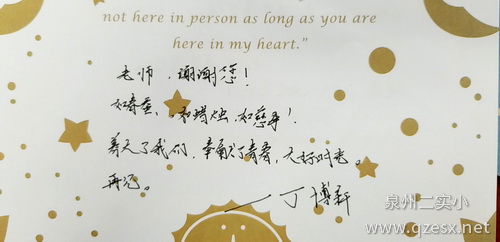 not here in person as long as you are
here in my heart."
老师，谢谢您！
如春蚕，如蜡烛，如慈母！
养大了我们，奉献了青春，无怨时光。
再见。
——丁博轩
泉州二实小
www.qzesx.net